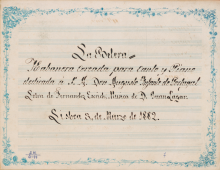 La Pelera
Habanera cerrada para canto y Piano
dedicada á S. A. Don Augusto Infante de Portugal
Letra de Fernandez Música de D. Juan
Lisboa 3, de Marzo de 1882.